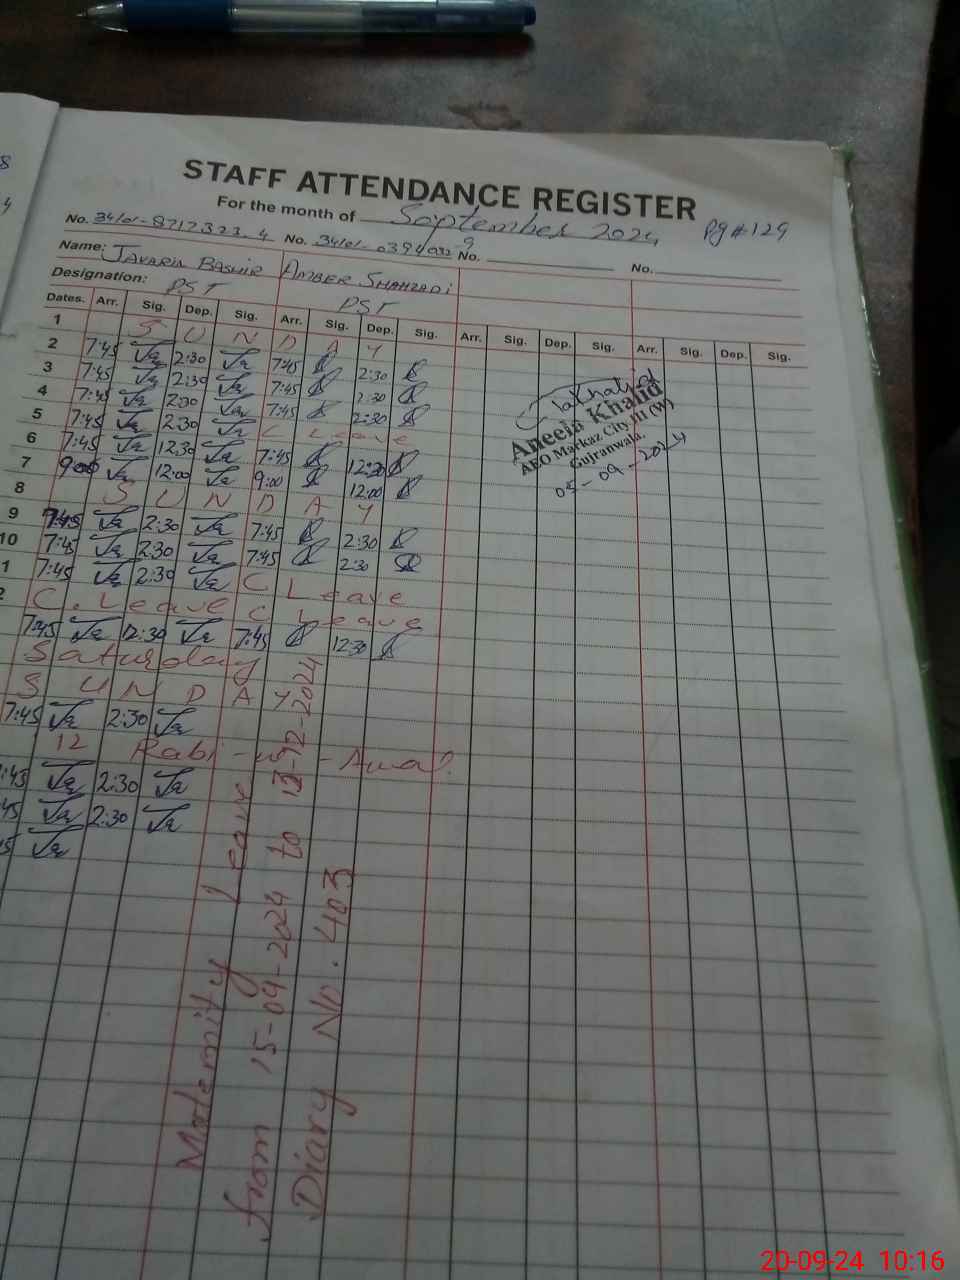 STAFF ATTENDANCE REGISTER
For the month of September 2024 Pg # 129
No. 34101-8717323.4 No. No. No.
Name: JAVARIA BASHIR AMBER SHAHZADI
Designation: PST PST
Dates. Arr. Sig. Dep. Sig. Arr. Sig. Dep. Sig. Arr. Sig. Dep. Sig. Arr. Sig. Dep. Sig.
1 S U N D A Y
2 7:45 2:30 7:45 2:30
3 7:45 2:30 7:45 2:30
4 7:45 2:30 7:45 2:30
5 7:45 2:30 C Leave
6 7:45 12:30 7:45 12:30
7 9:00 12:00 9:00 12:00
8 S U N D A Y
9 7:45 2:30 7:45 2:30
10 7:45 2:30 7:45 2:30
1 7:45 2:30 C Leave
2 C. Leave C Leave
7:45 12:30 7:45 12:30
Saturday
S U N D A Y
7:45 2:30
12 Rabi-ul-Awal.
:45 2:30
:45 2:30
Aneela Khalid
AEO Markaz City III (W)
Gujranwala.
05-09-2024
Maternity Leave
from 15-09-2024 to 13-12-2024
Diary No. 403
20-09-24 10:16